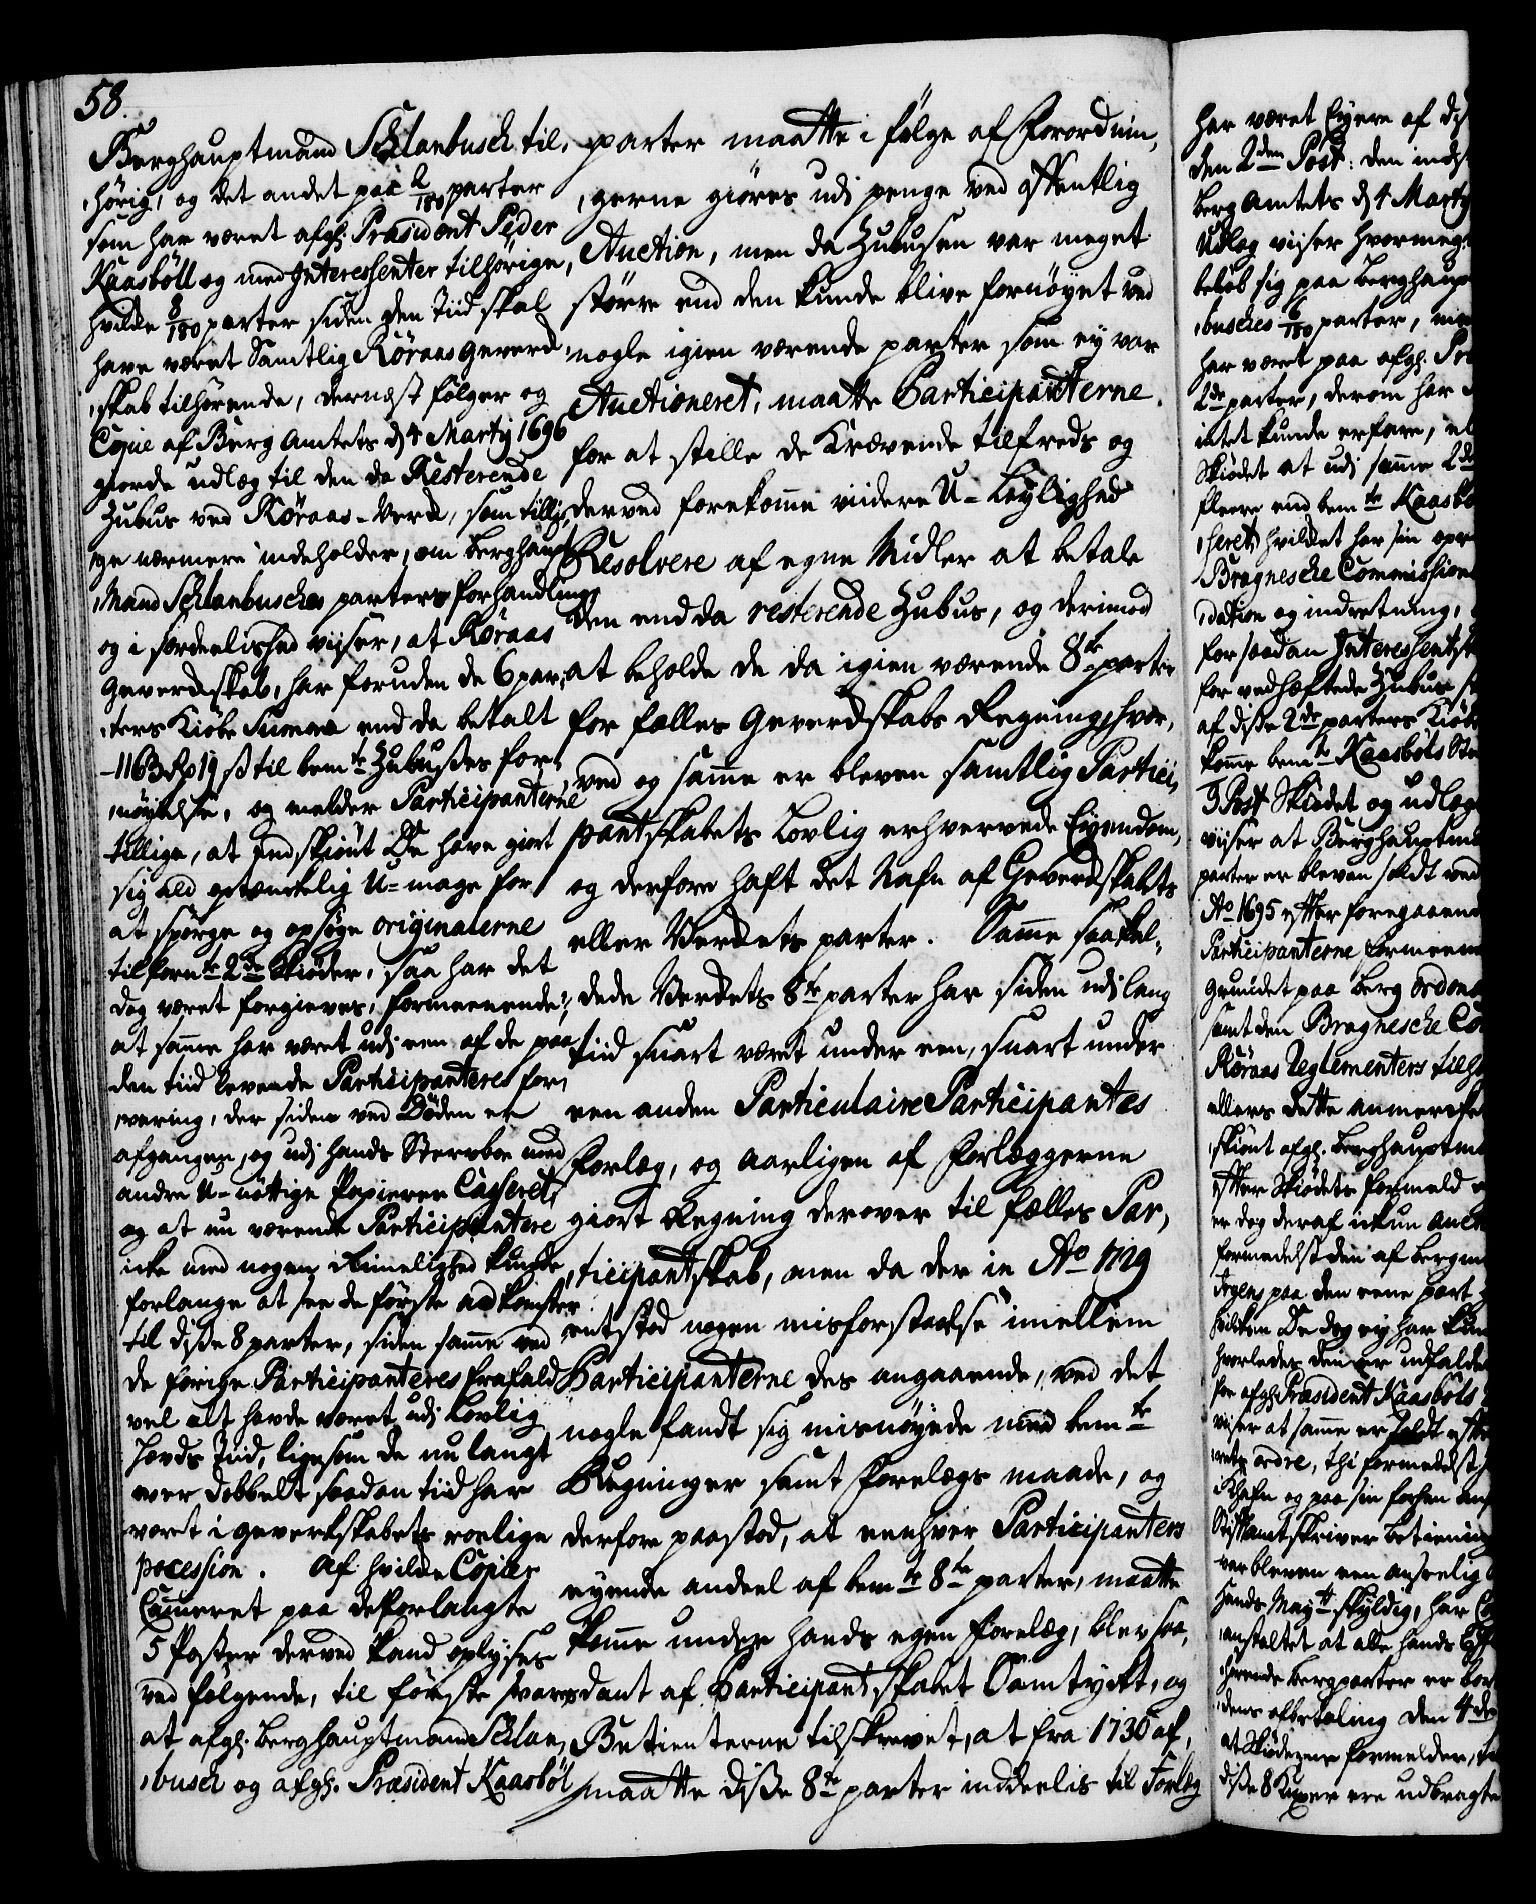 58.
Berghauptmand Schlanbusch til,
,hörig, og det andet paa 2/180 parter
som har været afg: Præsident Peder
Kaasböll og med Interessenter tilhörige,
hvilke 8/180 parter siden den Tiid skal
have været Samtlig Röraas Geverck,
,skab tilhörende, dernæst fölger og
Copie af Berg Amtets d 4 Martij 1696
giorde udlæg til den da Resterende
Zubus ved Röraas-Verck, som tillij,
,ge nærmere indeholder, om Berghaupt
,Mand Schlanbusches parters forhandling
og i særdeelished viiser, at Röraas
Geverckskab, har foruden de 6 par,
,ters Kiöbe Summa end da betalt
-1163 Rd 19 s til bemte Zubuses for,
,nöyelse, og melder Participanterne
tillige, at endskiönt De have giort
sig ald optænkelig U-mage for
at spörge og opsöge originalerne
til fornte 2de Skiöder, saa har det
dog været forgieves, formeenende
at samme har været udj een af de paa
den tiid levende Participanteres for,
,varing, der siden ved Döden er
afgangen, og udj hands Sterboe med
andre U-nöttige Papierer Casseret,
og at nu værende Participantere
icke med nogen Rimelighed kunde
forlange at see de förste adkomster
til disse 8 parter, siden samme ved
de forige Participanteres frafald
vel alt havde været udj Lovlig
Hævds Tiid, ligesom de nu langt
over dobbelt saadan tiid har
været i Geverckskabets roelige
pocession. Af hvilke Copier
Cameret paa de forlangte
5 Poster derved kand oplyses
ved fölgende, til förste svares
at afg: Berghauptmand Schlan,
,busch og afg: Præsident Kaasböl
parter maatte i fölge af Forordnin,
,gerne giöres udj penge ved offentlig
Auction, men da Zubusen var meget
större end den kunde blive fornöyet ved
nogle igien værende parter som ey var
Auctioneret, maatte Participanterne
for at stille de Krævende tilfreds og
derved forekomme viidere U-Leylighed
Resolvere af egne Midler at betale
den endda resterende Zubus, og derimod
at beholde de da igien værende 8te parter
for fælles Geverckskabs Regning, hvor,
,ved og samme er bleven samtlig Partici,
pantskabets Lovlig erhvervede Eyendom,
og derfore haft det Nafn af Geverckskabets
eller Verckets parter. Samme saakal,
,dede Verckets 8te parter har siden udj lang
Tiid snart været under een, snart under
een anden Particulaire Participantes
Forlag, og aarligen af Forlæggerne
giort Regning derover til fælles Par,
,ticipantskab, men da der in Ao 1729
entstod nogen misforstaaelse imellem
Participanterne des angaaende, ved det
nogle fandt sig misnöyede med bemte
Regninger samt forelægs maade, og
derfore paastod, at eenhver Participanters
eyende andeel af bemte 8te parter, maatte
komme under hands egen forelæg, blev saa,
,dant af Participantskabet Samtyckt, og
Betienterne tilskrevet, at fra 1730 af,
maatte disse 8te parter inddeelis til Forlæg
har været Eyere af dis
den 2den Post: den inds
Berg Amtets d 4 Martij
Udlæg viiser hvormeg
belöb sig paa Berghaup
,busches 6/180 parter, me
har været paa afg: Pr
2de parter, derom har
intet kunde erfare, el
Skiödet at udj samme 2de
fleere end bemte Kaasb
,seret, hvilket har sin opr
Bragnesche Commission
,dation og indretning,
for saadan Interessentsk
for vedhæftede Zubus
af disse 2de parters Kiöb
komme bemte Kaasböls Ste
3 Post Skiödet og udlæg
viiser at Berghauptma
parter er bleven soldt ved
Ao 1695 efter foregaaend
Participanterne formeen
Grundet paa Berg ordon
samt den Bragnesche Co
Röraas Reglementers tilh
ellers dette anmercke
,skiönt afg: Berghauptma
efter Skiödets formeld
er dog deraf ickun Auct
formedelst den af Bergm
Irgens paa den eene part
hvilken De dog ey har kun
hvorledes den er udfalde
for afg: Præsident Kaasböls
viiser at samme er soldt eft
,rets ordre, thi formedelst
i Khafn og paa sin forhen
Stiftamtskriver betiening
var bleven een anseelig
Hands Mayts skyldig, har
,anstaltet at alle hands
,hörende bergparter er bor
,dens afbetaling den 4de
at Skiöderne formelder,
disse 8 Kuxer ere udbragte